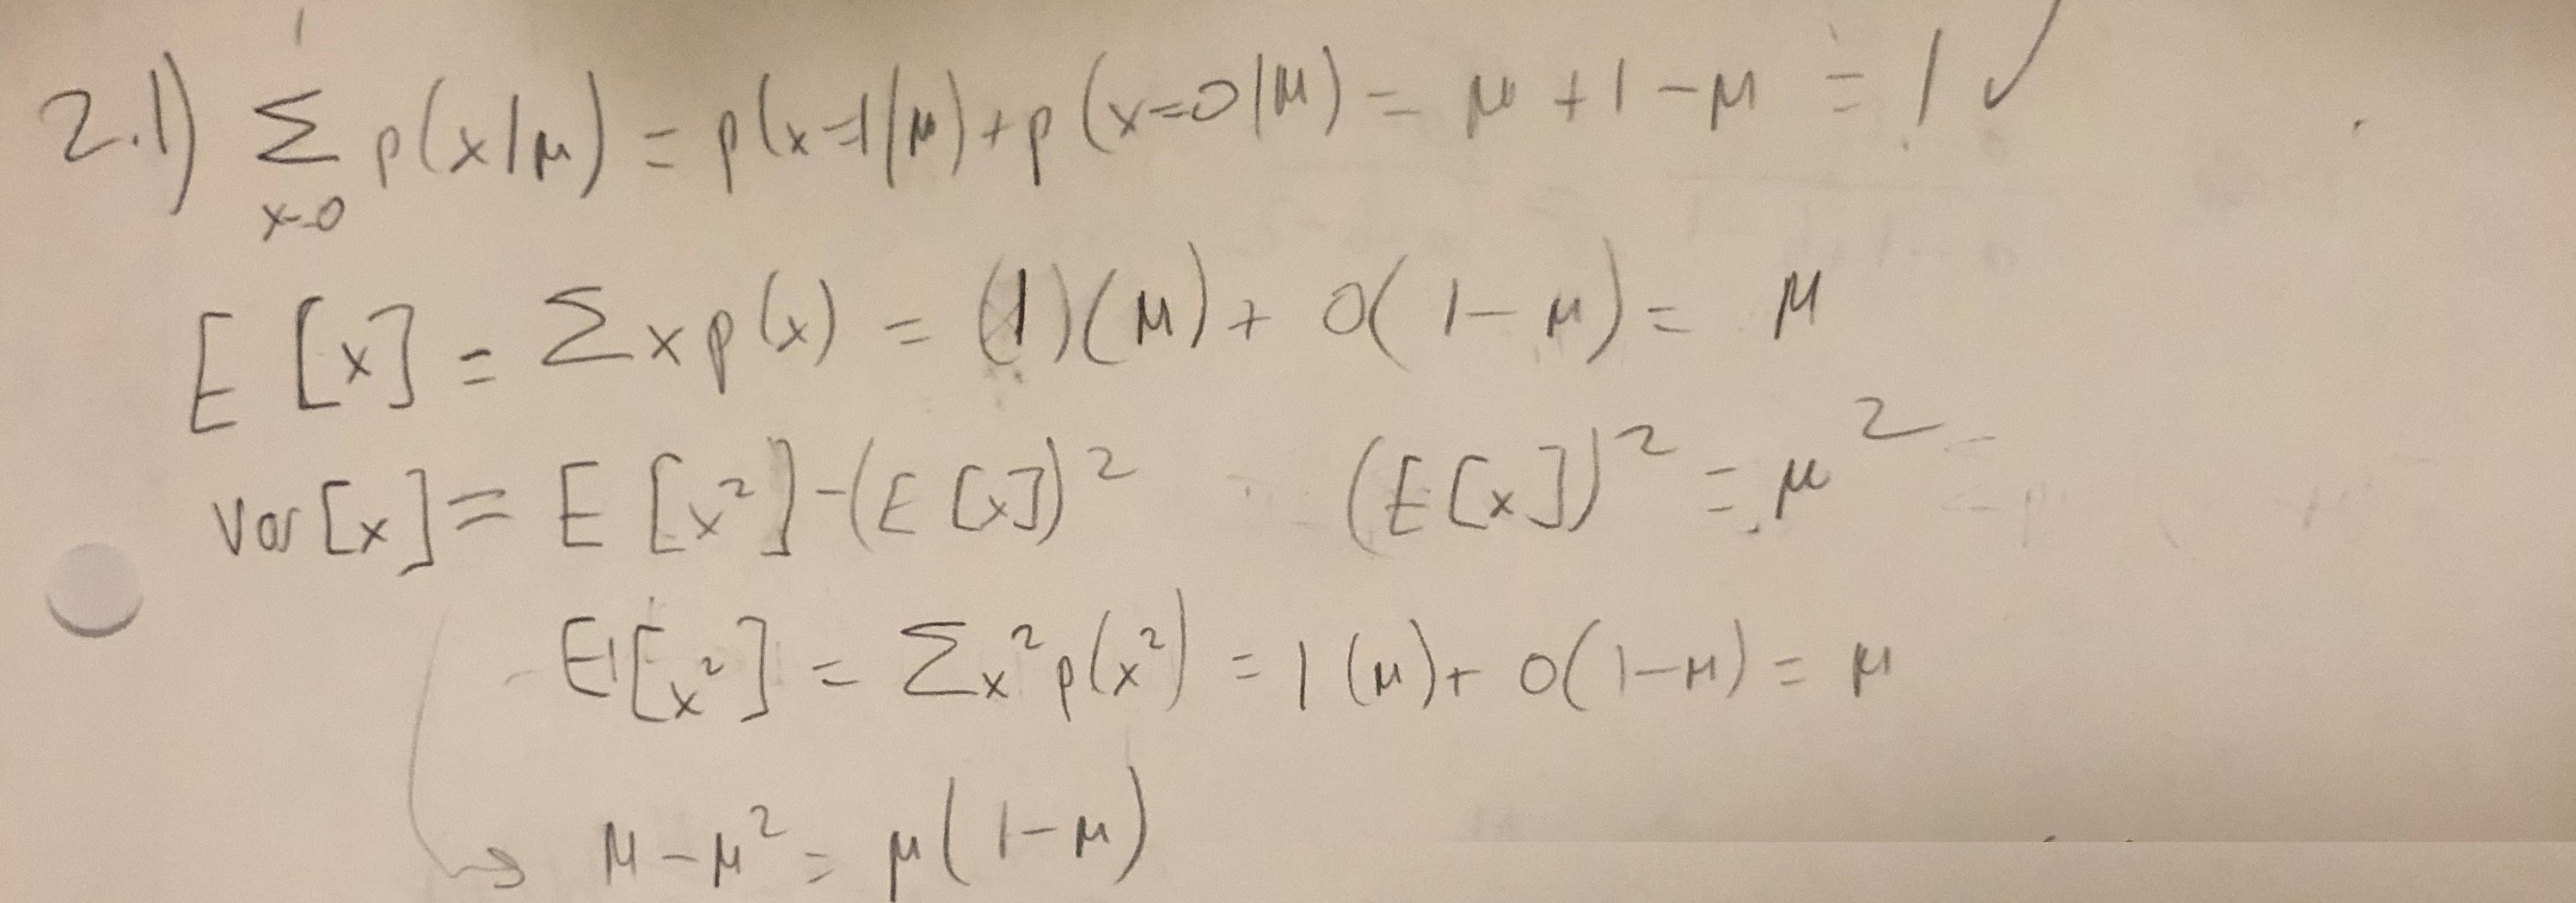 2.1) 1∑x=0 p(x|μ) = p(x=1|μ)+p(x=0|μ) = μ + 1 − μ = 1 ✓
E[x] = ∑ x p(x) = (1)(μ) + 0(1−μ) = μ
var[x] = E[x²]−(E[x])² (E[x])² = μ²
E[x²] = ∑x² p(x²) = 1(μ)+ 0(1−μ) = μ
→ μ−μ² = μ(1−μ)